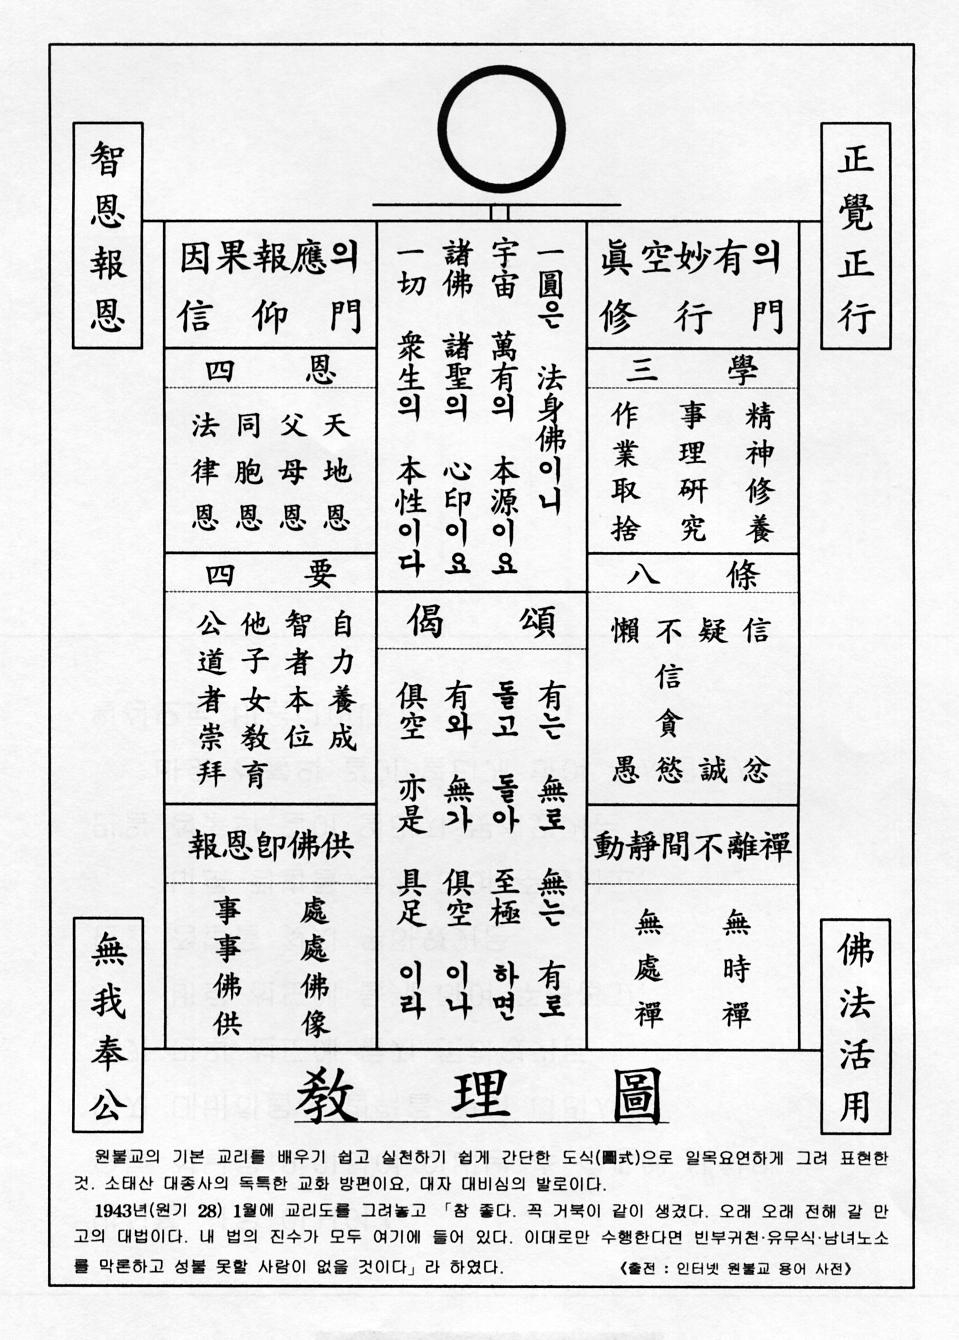 正覺正行
智恩報恩
眞空妙有의
修行門
三學
精神修養
事理硏究
作業取捨
八條
信 忿
疑 誠
不信 貪慾
懶 愚
動靜間不離禪
無時禪
無處禪
一圓은 法身佛이니
宇宙 萬有의 本源이요
諸佛 諸聖의 心印이요
一切 衆生의 本性이다
偈頌
有는 無로 無는 有로
돌고 돌아 至極 하면
有와 無가 俱空 이나
俱空 亦是 具足 이라
因果報應의
信仰門
四恩
天地恩
父母恩
同胞恩
法律恩
四要
自力養成
智者本位
他子女敎育
公道者崇拜
報恩卽佛供
處處佛像
事事佛供
佛法活用
無我奉公
敎理圖
원불교의 기본 교리를 배우기 쉽고 실천하기 쉽게 간단한 도식(圖式)으로 일목요연하게 그려 표현한
것. 소태산 대종사의 독특한 교화 방편이요, 대자 대비심의 발로이다.
1943년(원기 28) 1월에 교리도를 그려놓고 「참 좋다. 꼭 거북이 같이 생겼다. 오래 오래 전해 갈 만
고의 대법이다. 내 법의 진수가 모두 여기에 들어 있다. 이대로만 수행한다면 빈부귀천·유무식·남녀노소
를 막론하고 성불 못할 사람이 없을 것이다」라 하였다. 《출전 : 인터넷 원불교 용어 사전》